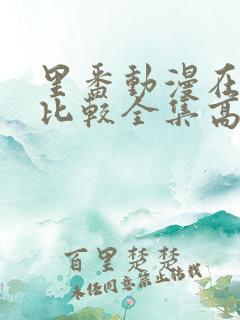 里番動漫在
比較全集高
百里楚楚
未经同意禁止转载